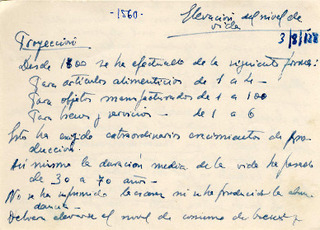 -1560-
Elevación del nivel de
vida
3/8/
Proyección
Desde 1800 se ha efectuado de la siguiente forma:
Para artículos alimenticios de 1 a 4-
Para objetos manufacturados de 1 a 100
Para bienes y servicios - de 1 a 6
Esto ha exigido extraordinarios crecimientos de pro-
ducción.
Así mismo la duración media de la vida ha pasado
de 30 a 70 años-
No se ha suprimido la escasez ni se ha producido la abun-
dancia-
Deberá elevarse el nivel de consumo de bienes y